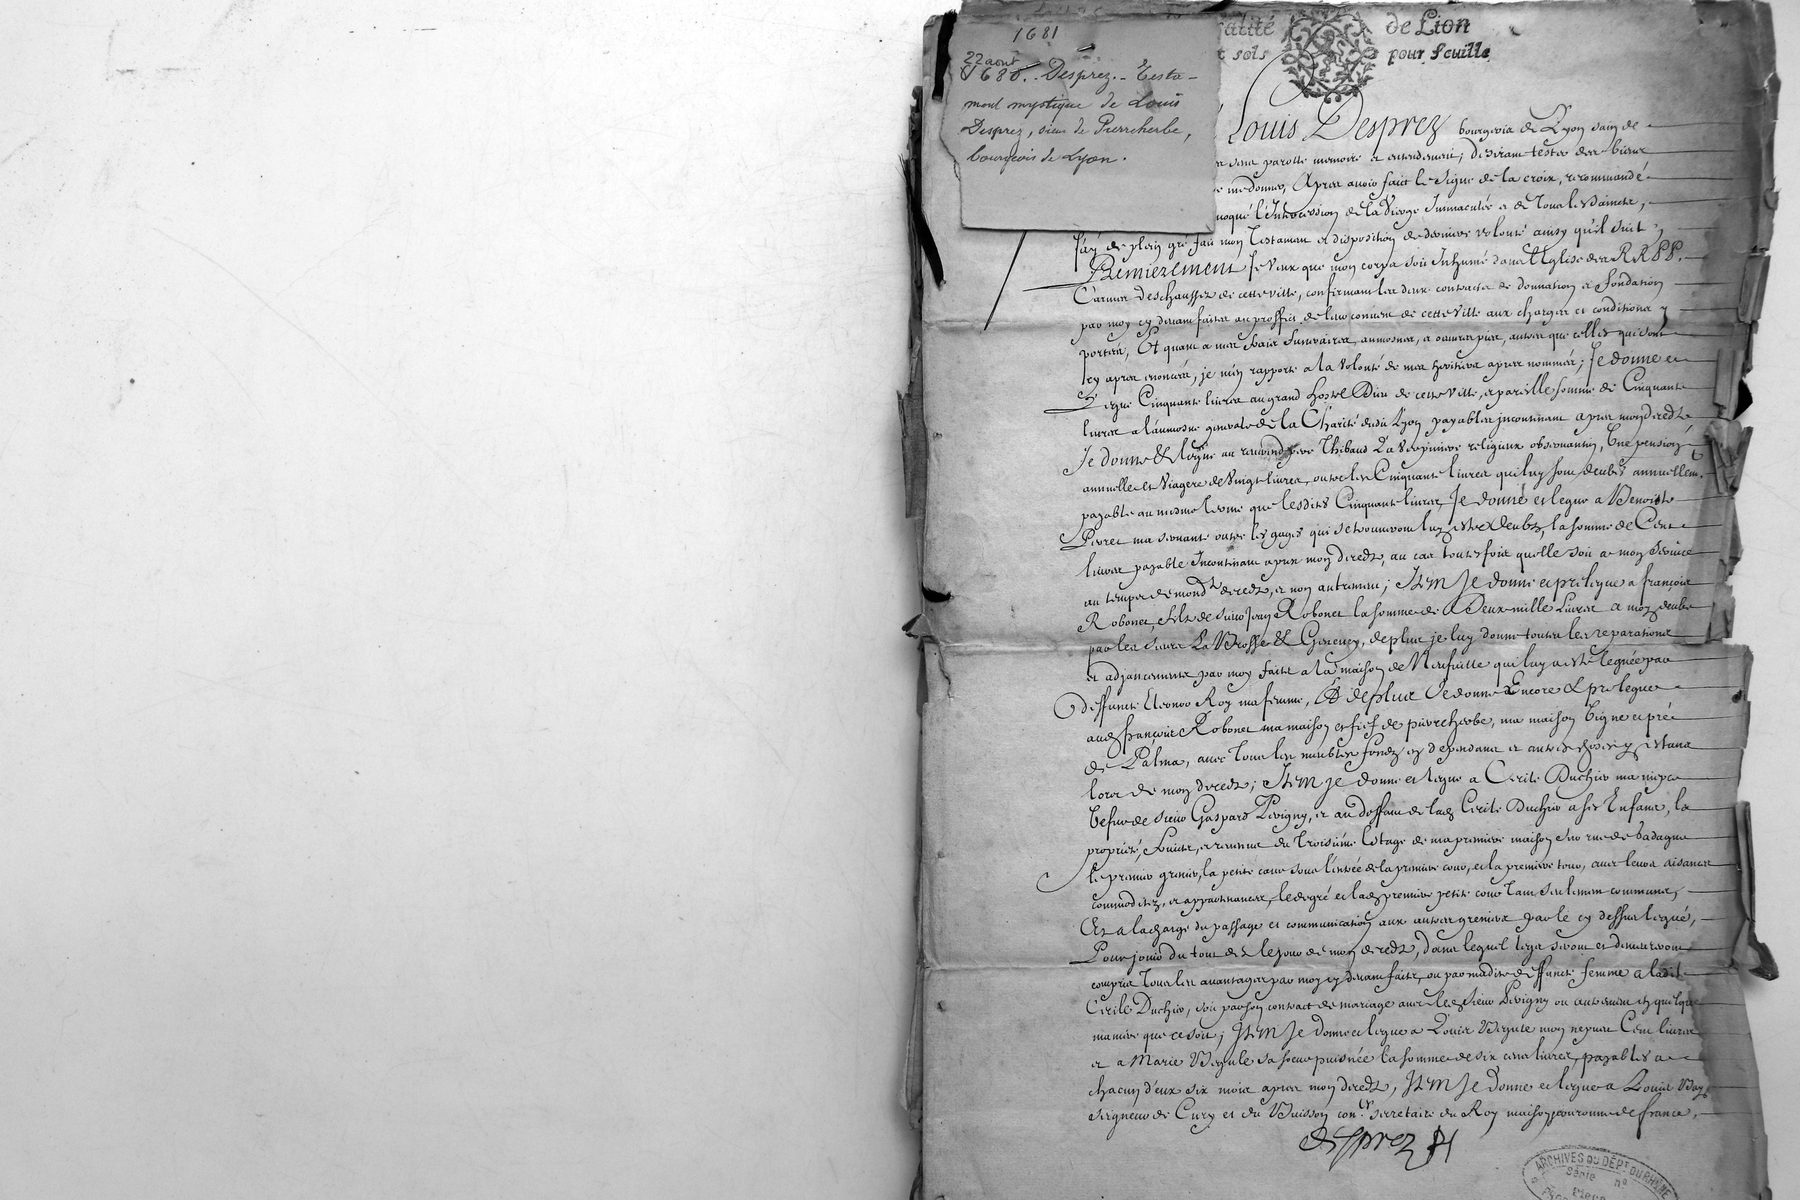 1681
22 aout
1680. Desprez. - Testa-
ment mystique de Louis
Desprez, sieur de Pierreherbe,
bourgeois de Lyon.
alité de Lion
sols pour feuille
Louis Desprez bourgeois de Lyon sain de
sens parolle memoire et entendement, desirant tester des biens
me donnes, Apres avoir fait le signe de la croix, recommandé
invoqué l'Intercession de la Vierge Immaculée et de Tous les saincts,
J'ay de plein gré fait mon Testament et disposition de derniere volonté ainsy qu'il suit
Premierement Je veux que mon corps soit Inhumé dans l'Eglise des RR PP.
Carmes Deschaussez de cette ville, confirmant les deux contracts de donnation et fondation
par moy cy devant faites au proffit de leur convent de cette ville aux charges et conditions y
portées, Et quant a mes frais funeraires, aumosnes, et oeuvres pies, autres que celles qui sont
cy apres enoncées, je m'en rapporte a la volonté de mes heritiers apres nommés; Je donne et
Legue Cinquante livres au grand Hostel Dieu de cette ville, et pareille somme de Cinquante
livres a l'aumosne generale de la Charité dudit Lyon payables incontinent apres mon decedz
Je donne et legue au reverend pere Thibaud religieux observantin, Une pension
annuelle et viagere de Vingt livres, outre les Cinquante livres qui luy sont deubes annuellemt.
payable au mesme terme que lesdites Cinquante livres, Je donne et legue a Benoiste
Perret ma servante outre les gages qui se trouveront luy estre deubz, la somme de Cent
livres payable Incontinent apres mon decedz, au cas toutesfois quelle soit a mon service
au temps de mond.t decedz, et non autrement; Item Je donne et prelegue a françois
Robonet, filz de sieur Jean Robonet la somme de Deux mille Livres a moy deube
par les sieurs La Brosse et, de plus je luy donne toutes les reparations
et adjancements par moy faits a la maison de Neufville qui luy a esté leguée par
deffuncte Eleonor Roy ma femme, Et de plus Je donne Encore et prelegue
aud. françois Robonet ma maison et fief de pierreherbe, ma maison Vigne et pré
de Palma, avec Tous les meubles fondz en dependans et autres choses y estans
lors de mon decedz; Item Je donne et legue a Cecile Duchier ma niepce
Vefve de sieur Gaspard Pevigny, et au deffaut de lad. Cecile Duchier a ses Enfans, la
proprieté, fruictz, et revenus du Troisieme Estage de ma premiere maison size rue de Gadagne
le premier grenier, la petite cave soubz l'entrée de la premiere cour, et la premiere tour, avec leurs aisances
commoditez, et appartenances, le degré et lad. premiere petite cour tant seulement communs,
Et a la charge du passage et communication aux autres greniers par le cy dessus legué,
Pour jouir du tout dez le jour de mon decedz, dans lequel legat seront et demeureront
compris Tous les avantages par moy cy devant faits, ou par madite deffuncte femme a ladite
Cecile Duchier, soit par son contract de mariage avec led. sieur Pevigny ou autrement en quelque
maniere que ce soit; Item Je donne et legue a Louis Begule mon nepveu Cent livres
et a Marie Begule sa soeur puisnée la somme de six cens livres, payables a
chacun d'eux six mois apres mon decedz, Item Je donne et legue a Louis Bay
seigneur de Cury et du Buisson con.er secretaire du Roy maison couronne de france,
desprez
ARCHIVES DU DÉPT DU RHÔNE
Série nº